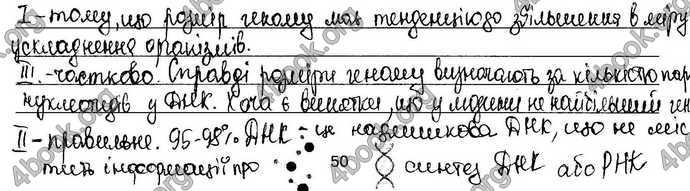 I - тому, що розмір геному має тенденцію до збільшення в міру
ускладнення організмів.
III. - частково. Справді розміри геному визначають за кількістю пар
нуклеотидів у ДНК. Хоча є винятки, що у людини не найбільший ген
II - правильне. 95-98% ДНК - це надлишкова ДНК, що не міс
тить інформації про 50 синтез ДНК або РНК